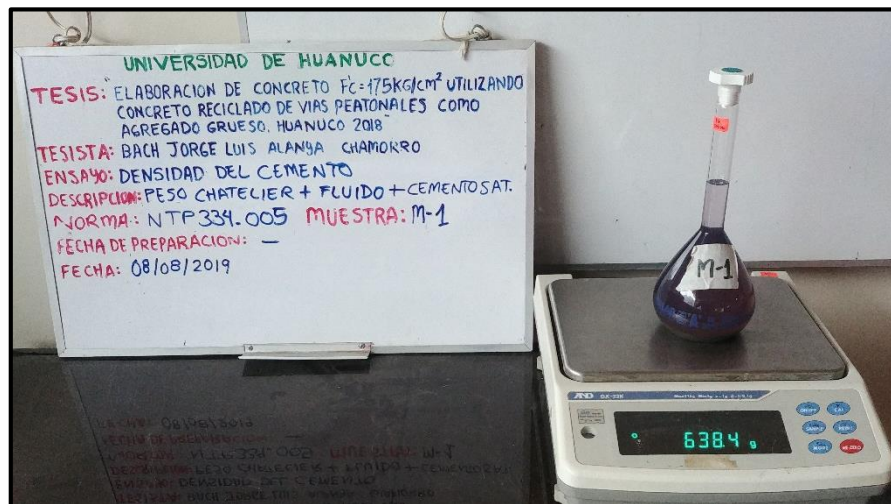 UNIVERSIDAD DE HUANUCO
TESIS: ELABORACION DE CONCRETO F'C=175KG/CM² UTILIZANDO
CONCRETO RECICLADO DE VIAS PEATONALES COMO
AGREGADO GRUESO. HUANUCO 2018"
TESISTA: BACH JORGE LUIS ALANYA CHAMORRO
ENSAYO: DENSIDAD DEL CEMENTO
DESCRIPCION: PESO CHATELIER + FLUIDO + CEMENTO SAT.
NORMA: NTP 334.005 MUESTRA: M-1
FECHA DE PREPARACION: —
FECHA: 08/08/2019
M-1
AND
638.4 g